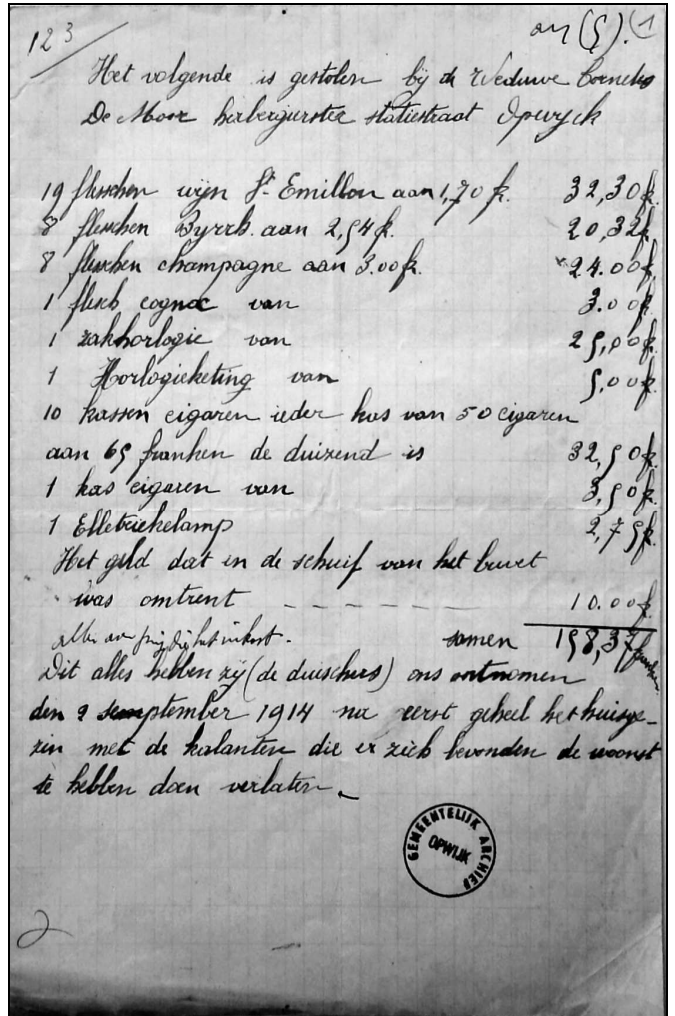 123
(1
Het volgende is gestolen bij de Weduwe Cornelis
De Moor herbergierster statiestraat Opwyck
19 flesschen wijn St Emillon aan 1,70 fr. 32,30 fr.
8 flesschen Byrrh. aan 2,54 fr. 20,32 fr.
8 flesschen champagne aan 3.00 fr. 24.00 fr.
1 flesch cognac van 3.00 fr.
1 zakhorlogie van 25,00 fr.
1 Horlogieketing van 5,00 fr.
10 kassen cigaren ieder kas van 50 cigaren
aan 65 franken de duizend is 32,50 fr.
1 kas cigaren van 3,50 fr.
1 Elletriekelamp 2,75 fr.
Het geld dat in de schuif van het buvet
was omtrent - - - - - - 10.00 fr.
samen 158,37 franken
Dit alles hebben zij (de duischers) ons ontnomen
den 9 september 1914 na eerst geheel het huisge-
zin met de kalanten die er zich bevonden de woonst
te hebben doen verlaten.
GEMEENTELIJK ARCHIEF
OPWIJK